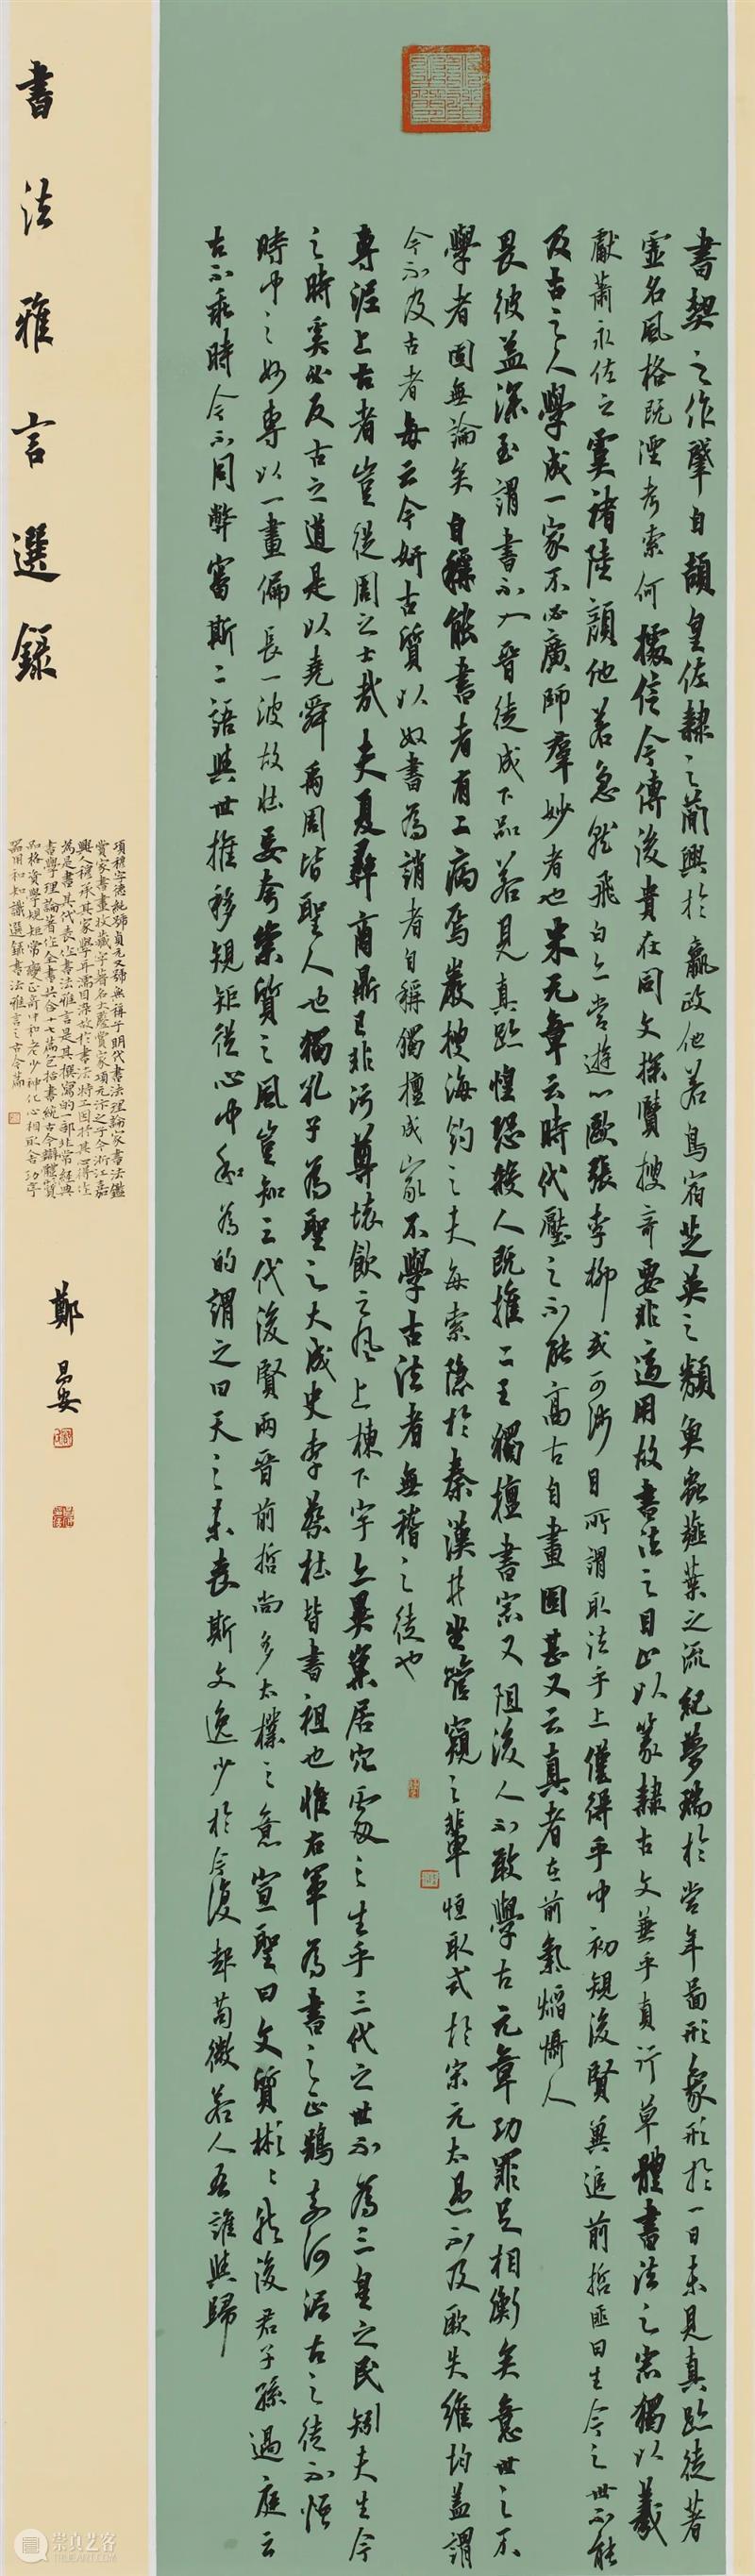 書契之作肇自頡皇佐隸之簡興於嬴政他若鳥宿芝英之類魚蟲薤葉之流紀夢瑞於當年圖形象形於一日未見真跡徒著
虛名風格既湮考索何據信今傳後貴在同文探賾搜奇要非適用故書法之目止以篆隸古文兼乎真行草體書法之宗獨以羲
獻蕭永佐之虞褚陸顏他若急就飛白亦當遊心歐張李柳或可涉目所謂取法乎上僅得乎中初規後賢冀追前哲匪曰生今之世不能
及古之人學成一家不必廣師羣妙者也米元章云時代壓之不能高古自畫固甚又云真者在前氣焰懾人
畏彼益深至謂書不入晉徒成下品若見真跡惶恐殺人既推二王獨擅書宗又阻後人不敢學古元章功罪足相衡矣噫世之不
學者固無論矣自稱能書者有二病焉巖搜海釣之夫每索隱於秦漢井坐管窺之輩恒取式於宋元太過不及厥失維均蓋謂
今不及古者每云今妍古質以奴書為誚者自稱獨擅成家不學古法者無稽之徒也
專泥上古者豈從周之士哉夫夏彝商鼎已非汙尊坏飲之風上棟下宇亦異巢居穴處之生乎三代之世不為三皇之民矧夫生今
之時奚必反古之道是以堯舜禹周皆聖人也獨孔子為聖之大成史李蔡杜皆書祖也惟右軍為書之正鵠奈何泥古之徒不悟
時中之妙專以一畫偏長一波故壯妄夸崇質之風豈知三代後賢兩晉前哲尚多太樸之意宣聖曰文質彬彬然後君子孫過庭云
古不乖時今不同弊審斯二語與世推移規矩從心中和為的謂之曰天之未喪斯文逸少於今復起苟微若人吾誰與歸
書法雅言選錄
項穆字德純號貞元又號無稱子明代書法理論家書法鑑
賞家書畫收藏家著名大鑒賞家項元汴之子今浙江嘉
興人穆承其家學耳濡目染故於書法特工因抒其心得作
為是書其代表作書法雅言是其撰寫的一部非常經典
書學理論著作全書共合十七篇包括書統古今辯體形質
品格資學規矩常變正奇中和老少神化心相取舍功序
器用和知識選錄書法雅言之古今篇
鄭易安